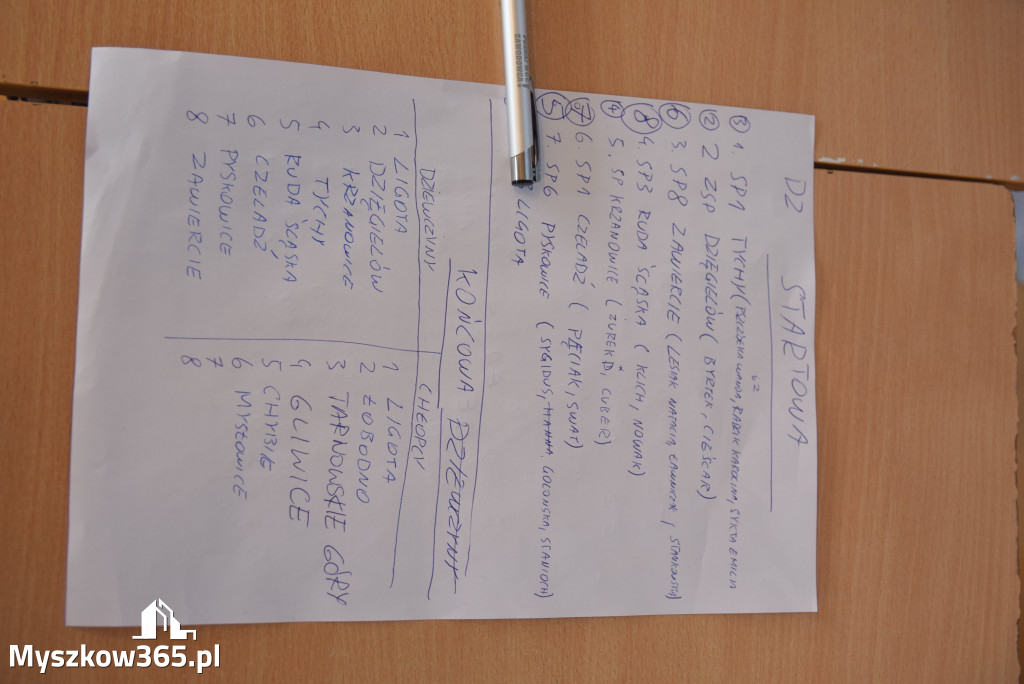 STARTOWA
DZ
③ 1. SP1 TYCHY (
② 2 ZSP DZIĘGIELÓW ( BYRTEK, CIEŚLAR)
⑥ 3. SP8 ZAWIERCIE (LESIAK NATALIA,
⑧ 4. SP3 RUDA ŚLĄSKA ( KLICH, NOWAK)
④ 5. SP KRZANOWICE ( ŻUREK D, CUBER)
⑦ 6. SP1 CZELADŹ ( PĘCIAK, SWAT)
⑤ 7. SP6 PYSKOWICE (
LIGOTA
KOŃCOWA DZIEWCZYNY
DZIEWCZYNY CHŁOPCY
1 LIGOTA 1 LIGOTA
2 DZIĘGIELÓW 2 ŁOBODNO
3 KRZANOWICE 3 TARNOWSKIE GÓRY
4 TYCHY 4 GLIWICE
5 RUDA ŚLĄSKA 5 CHYBIE
6 CZELADŹ 6 MYSŁOWICE
7 PYSKOWICE 7
8 ZAWIERCIE 8
Myszkow365.pl